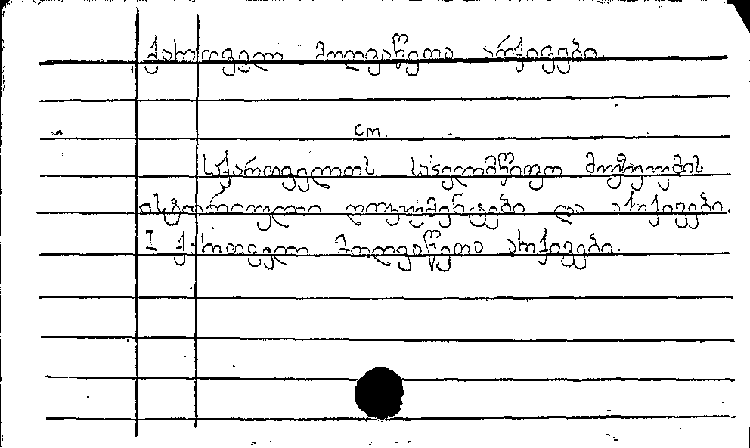 ქართველ მოღვაწეთა არქივები.
см.
საქართველოს სახელმწიფო მუზეუმის
ისტორიული დოკუმენტები და არქივები.
I ქართველ მოღვაწეთა არქივები.